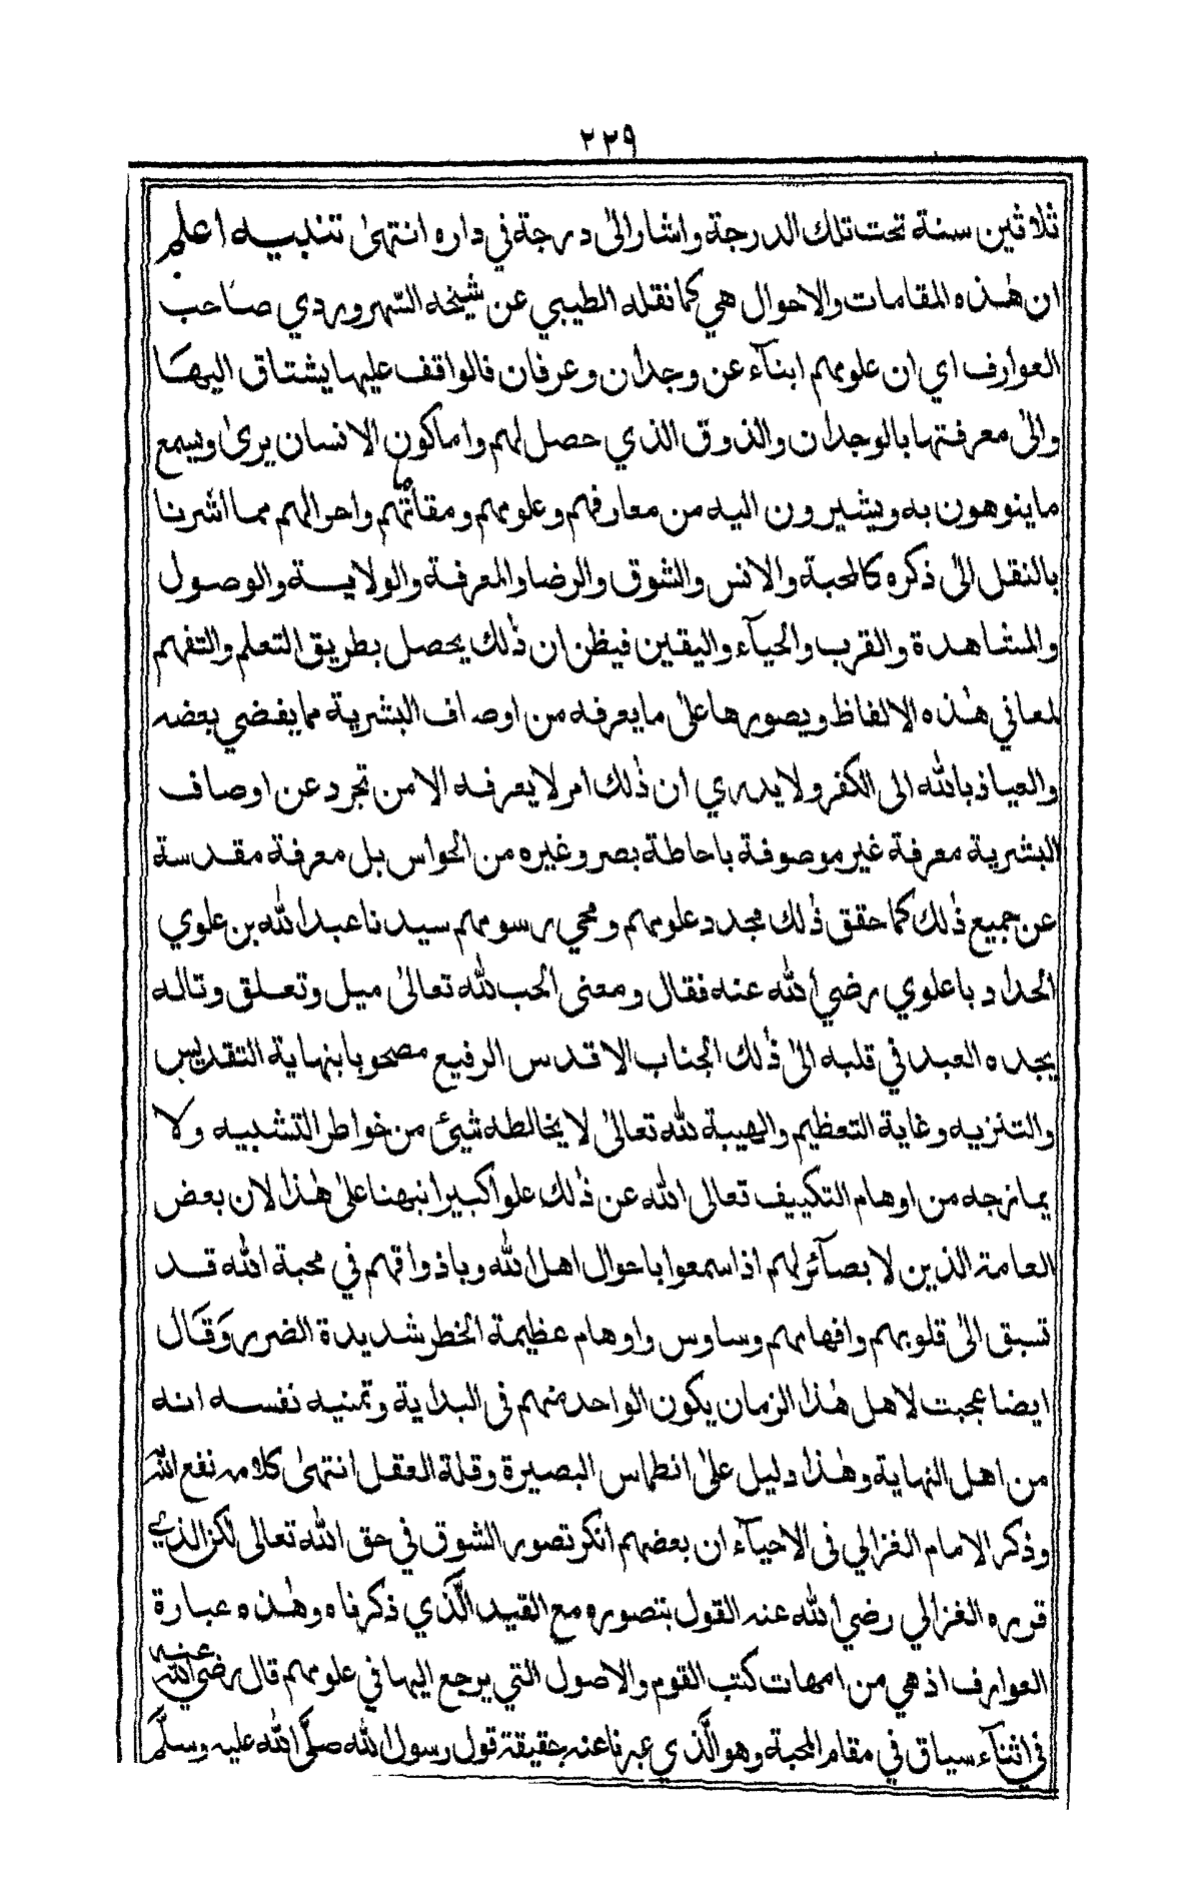 ٢٢٩
ثلاثين سنة تحت تلك الدرجة واشار الى درجة في داره انتهى تنبيه اعلم
ان هذه المقامات والاحوال هي كما نقله الطيبي عن شيخه السهروردي صاحب
العوارف اي ان علومهم ابنآء عن وجدان وعرفان فالواقف عليها يشتاق اليها
والى معرفتها بالوجدان والذوق الذي حصل لهم واما كون الانسان يرى ويسمع
ما ينوهون به ويشيرون اليه من معارفهم وعلومهم ومقاماتهم واحوالهم مما اشرنا
بالنقل الى ذكره كالمحبة والانس والشوق والرضا والمعرفة والولاية والوصول
والمشاهدة والقرب والحيآء واليقين فيظن ان ذلك يحصل بطريق التعلم والتفهم
لمعاني هذه الالفاظ ويصورها على ما يعرفه من اوصاف البشرية مما يفضي بعضه
والعياذ بالله الى الكفر ولا يدري ان ذلك امر لا يعرفه الا من تجرد عن اوصاف
البشرية معرفة غير موصوفة باحاطة بصر وغيره من الحواس بل معرفة مقدسة
عن جميع ذلك كما حقق ذلك مجدد علومهم ومحي رسومهم سيدنا عبد الله بن علوي
الحداد باعلوي رضي الله عنه فقال ومعنى الحب لله تعالى ميل وتعلق وتاله
يجده العبد في قلبه الى ذلك الجناب الاقدس الرفيع مصحوبا بنهاية التقديس
والتنزيه وغاية التعظيم والهيبة لله تعالى لا يخالطه شيئ من خواطر التشبيه ولا
يمازجه من اوهام التكييف تعالى الله عن ذلك علوا كبيرا نبهنا على هذا لان بعض
العامة الذين لا بصآئر لهم اذا سمعوا باحوال اهل الله وباذواقهم في محبة الله قد
تسبق الى قلوبهم وافهامهم وساوس واوهام عظيمة الخطر شديدة الضرر وَقَال
ايضا عجبت لاهل هذا الزمان يكون الواحد منهم في البداية وتمنيه نفسه انه
من اهل النهاية وهذا دليل على انطماس البصيرة وقلة العقل انتهى كلامه نفع الله
وذكر الامام الغزالي في الاحيآء ان بعضهم انكر تصور الشوق في حق الله تعالى لكن الذي
قرره الغزالي رضي الله عنه القول بتصوره مع القيد الَّذي ذكرناه وهذه عبارة
العوارف اذ هي من امهات كتب القوم والاصول التي يرجع اليها في علومهم قال رضي الله عنه
في اثنآء سياق في مقام المحبة وهو الَّذي عبرنا عنه بحقيقة قول رسول الله صلَّى الله عليه وسلَّم